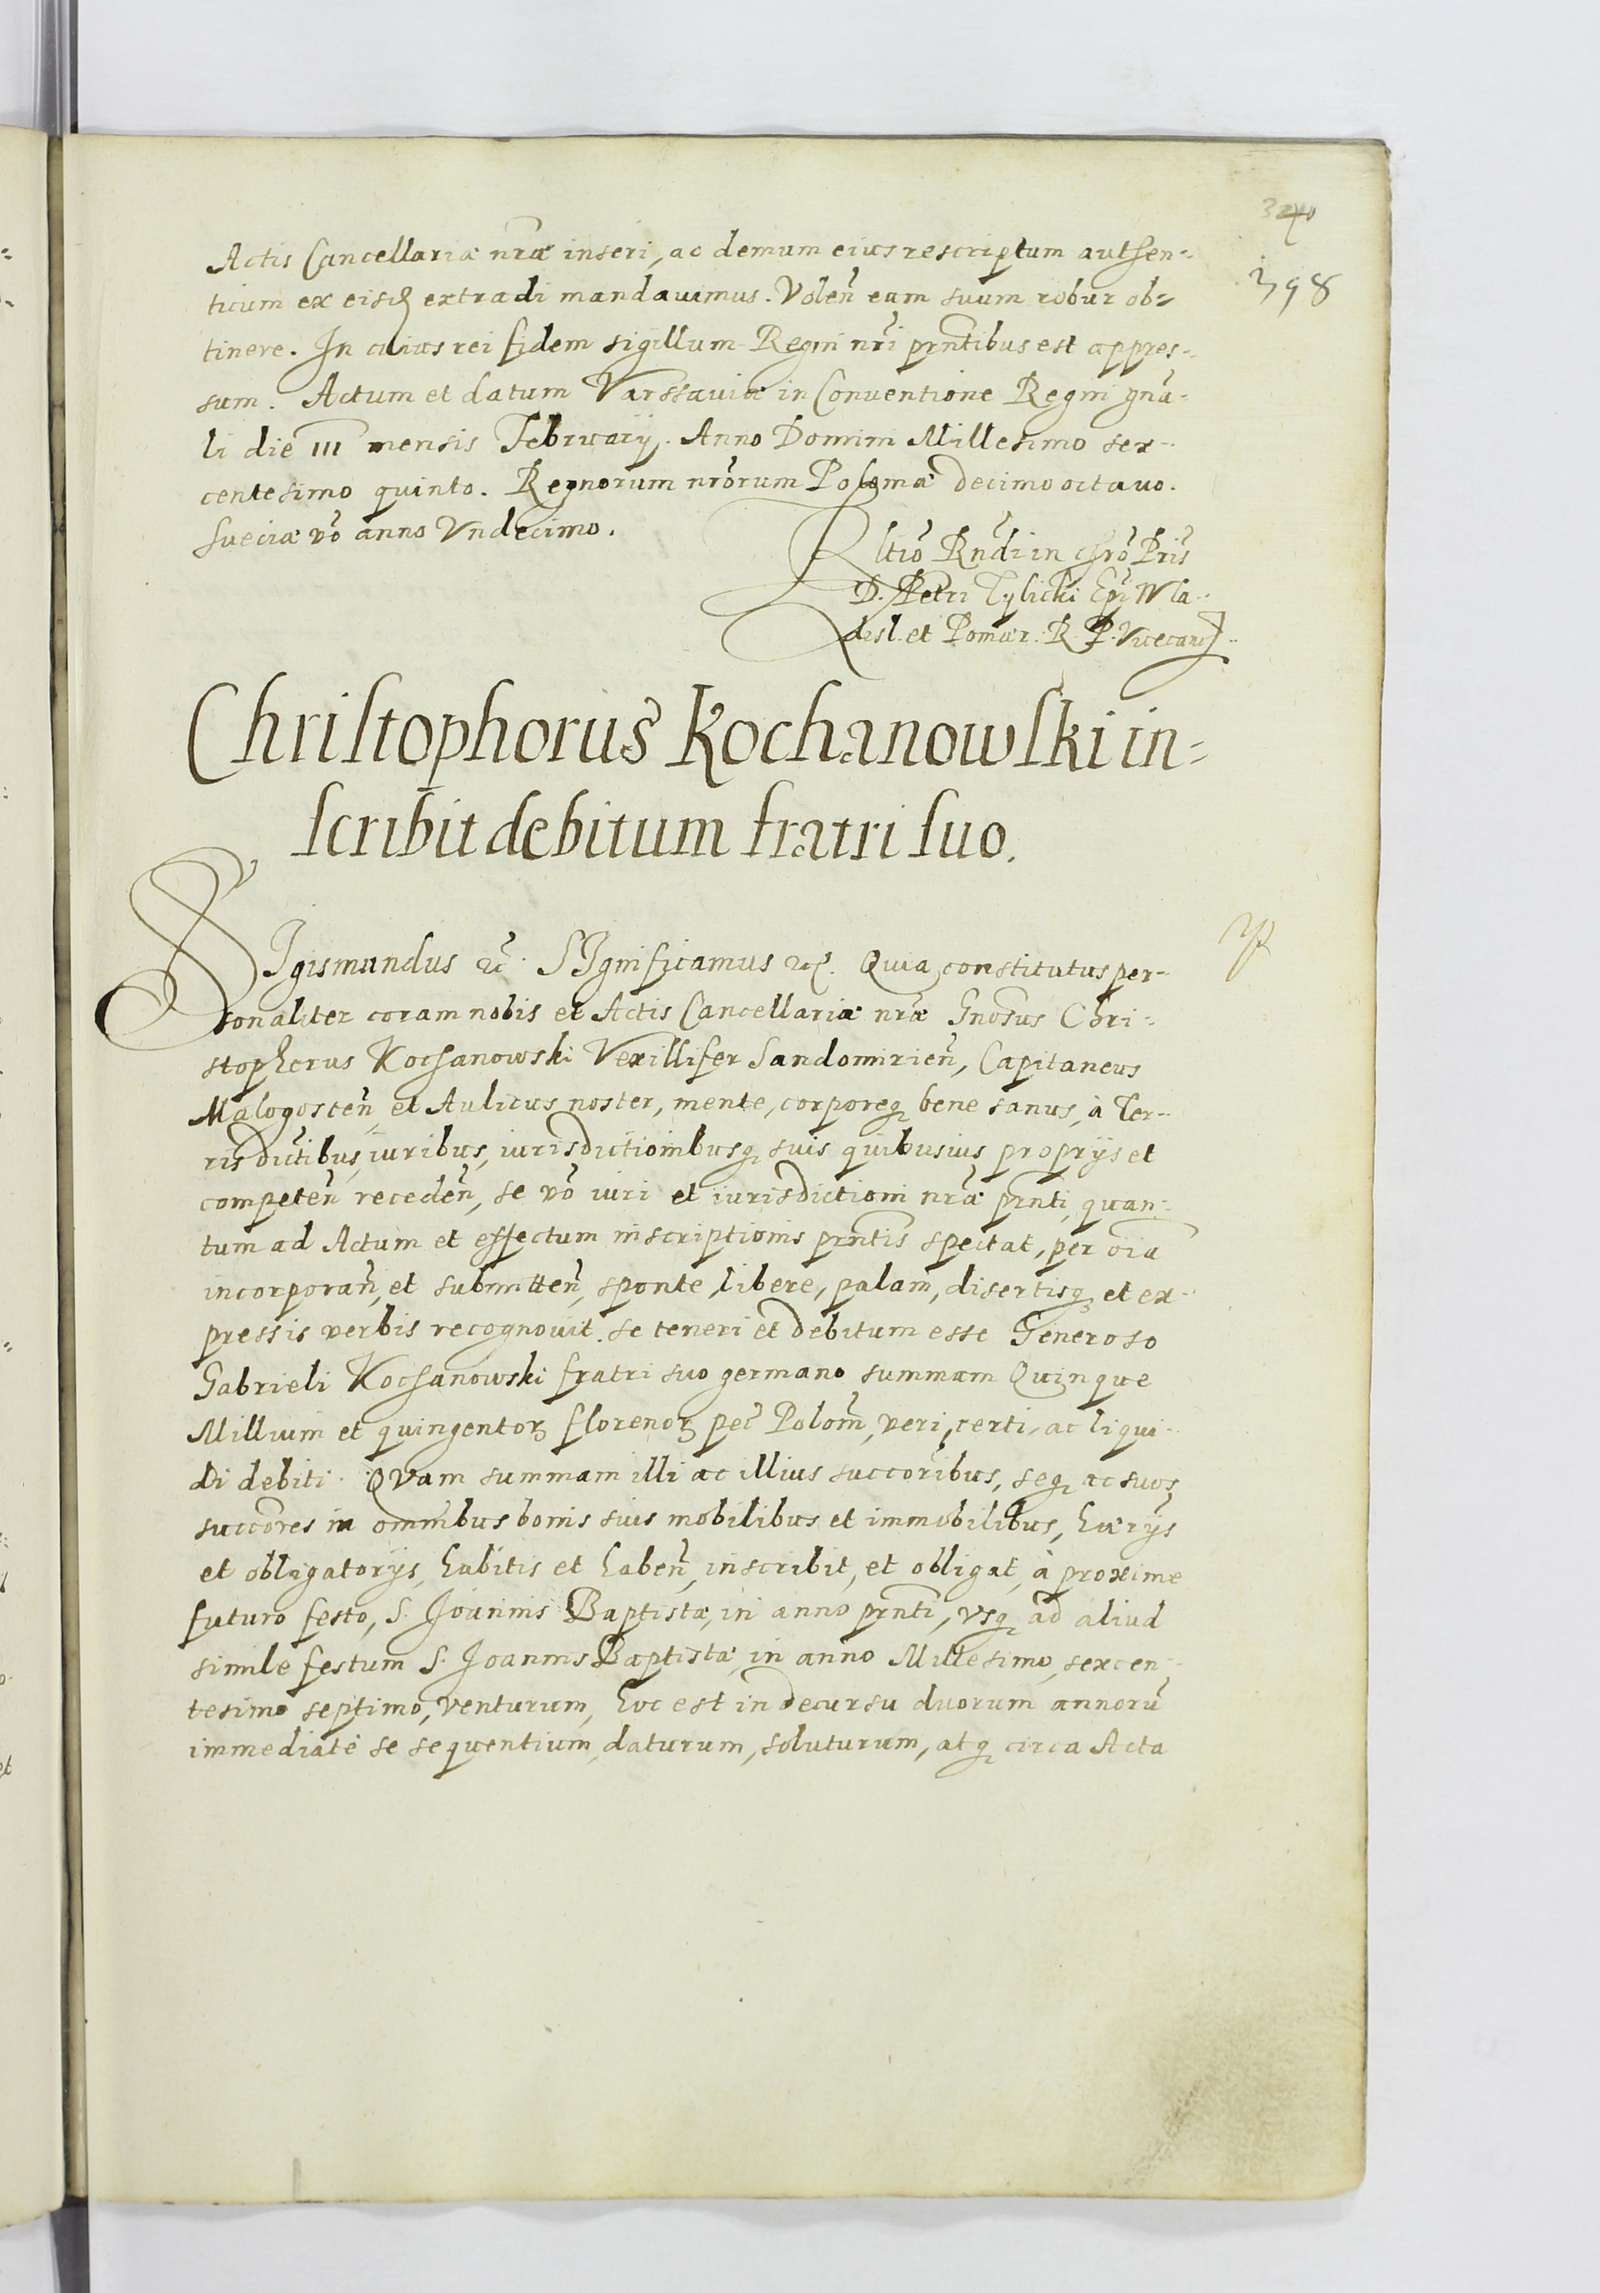 398
Actis Cancellariæ nræ inseri, ac demum eius rescriptum authen-
ticum ex eisd extradi mandauimus. Volen̄ eam suum robur ob-
tinere. In cuius rei fidem sigillum Regni nr̄i prn̄tibus est appres-
sum. Actum et datum Varssauiæ in Conuentione Regni gn̄a-
li die III mensis February. Anno Domini Millesimo sex-
centesimo quinto. Regnorum nr̄orum Poloniæ decimo octauo.
Sueciæ vō anno Vndecimo.
Rltiō Rn̄di in Chrō Pris
D. Petri Tylicki Epi Wla-
disl. et Pomær. R. P. Vicecanc
Christophorus Kochanowski in-
scribit debitum fratri suo.
SIgismundus etc. SIgnificamus etc. Quia constitutus per-
sonaliter coram nobis et Actis Cancellariæ nræ Gnōsus Chri-
stophorus Kochanowski Vexillifer Sandomirien̄, Capitaneus
Malogosten̄, et Aulicus noster, mente, corporeq bene sanus, à Ter-
ris dictibus, iuribus, iurisdictionibusq suis quibusuis proprijs et
competen̄ receden̄, se vō iuri et iurisdictioni nræ prn̄ti, quan-
tum ad Actum et effectum inscriptionis prn̄tis spectat, per oīa
incorporan̄, et submitten̄, sponte, libere, palam, disertisq et ex-
pressis verbis recognouit. se teneri et debitum esse Generoso
Gabrieli Kochanowski fratri suo germano summam Quinque
Millium et quingentorꝫ florenorꝫ pec̄ Polon̄, veri, certi, ac liqui-
di debiti. QVam summam illi ac illius succoribus, seq ac suos
succores in omnibus bonis suis mobilibus et immobilibus, hærijs
et obligatorijs, habitis et haben̄, inscribit, et obligat, à proxime
futuro festo, S. Joannis Baptistæ, in anno prn̄ti, vsq ad aliud
simile festum S. Joannis Baptistæ, in anno Millesimo, sexcen-
tesimo septimo, venturum, hoc est in decursu duorum annorū
immediatè se sequentium, daturum, soluturum, atq circa Acta